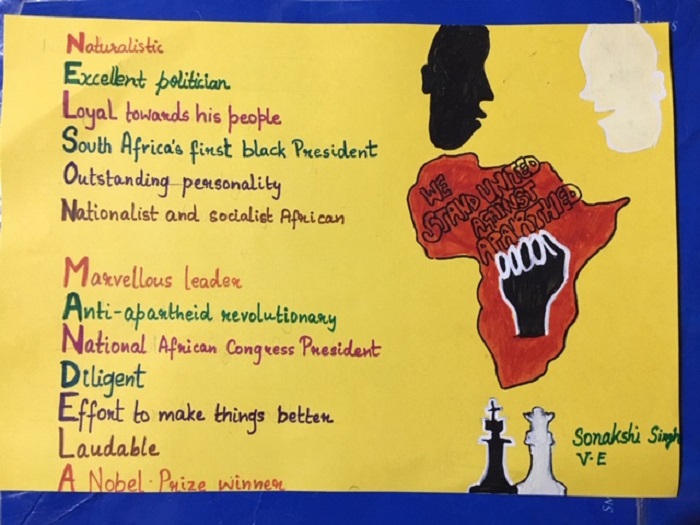 Naturalistic
Excellent politician
Loyal towards his people
South Africa's first black President
Outstanding personality
Nationalist and socialist African
Marvellous leader
Anti-apartheid revolutionary
National African Congress President
Diligent
Effort to make things better
Laudable
A Nobel-Prize winner
WE
STAND UNITED
AGAINST
APARTHIED
Sonakshi Singh
V-E